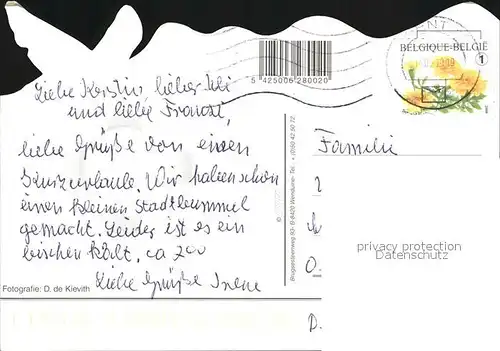 BELGIQUE-BELGIË
1
5 425006 280020
Liebe Kerstin, lieber Uli
und liebe Franzi,
liebe Grüße von einem
Kurzurlaub. Wir haben schon
einen kleinen Stadtbummel
gemacht. Leider ist es ein
bischen kalt, ca 7°C
Liebe Grüße Irene
Familie
Fotografie: D. de Kievith
Brugsesteenweg 90 B-8420 Wenduine Tel. + (0)50 42 50 72
privacy protection
Datenschutz